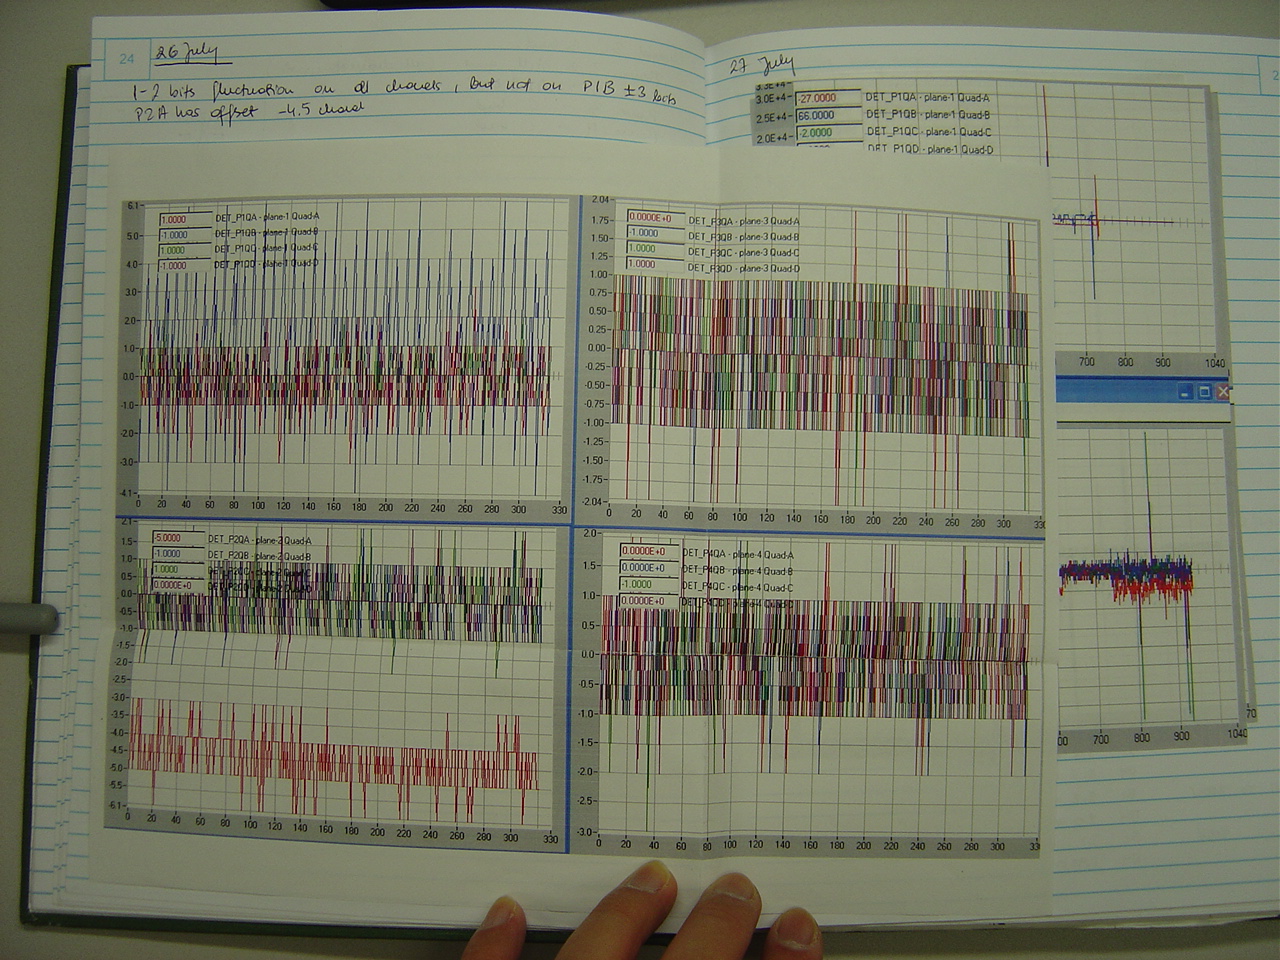 24
26 July
1-2 bits fluctuation on all channels, but not on P1B ±3 bits
P2A has offset -4.5 channel
27 July
2
3.0E+4 -27.0000 DET_P1QA - plane-1 Quad-A
2.5E+4 66.0000 DET_P1QB - plane-1 Quad-B
2.0E+4 -2.0000 DET_P1QC - plane-1 Quad-C
DET_P1QD - plane-1 Quad-D
700 800 900 1040
6.1
1.0000 DET_P1QA - plane-1 Quad-A
-1.0000 DET_P1QB - plane-1 Quad-B
1.0000 DET_P1QC - plane-1 Quad-C
-1.0000 DET_P1QD - plane-1 Quad-D
5.0
4.0
3.0
2.0
1.0
0.0
-1.0
-2.0
-3.0
-4.1
0 20 40 60 80 100 120 140 160 180 200 220 240 260 280 300 330
2.04
0.0000E+0 DET_P3QA - plane-3 Quad-A
-1.0000 DET_P3QB - plane-3 Quad-B
1.0000 DET_P3QC - plane-3 Quad-C
1.0000 DET_P3QD - plane-3 Quad-D
1.75
1.50
1.25
1.00
0.75
0.50
0.25
0.00
-0.25
-0.50
-0.75
-1.00
-1.25
-1.50
-1.75
-2.04
0 20 40 60 80 100 120 140 160 180 200 220 240 260 280 300 33
2.1
-5.0000 DET_P2QA - plane-2 Quad-A
-1.0000 DET_P2QB - plane-2 Quad-B
1.0000 DET_P2QC
0.0000E+0 DET_P2QD
1.5
1.0
0.5
0.0
-0.5
-1.0
-1.5
-2.0
-3.0
-3.5
-4.0
-4.5
-5.0
-5.5
-6.1
0 20 40 60 80 100 120 140 160 180 200 220 240 260 280 300 330
2.0
0.0000E+0 DET_P4QA - plane-4 Quad-A
0.0000E+0 DET_P4QB - plane-4 Quad-B
-1.0000 DET_P4QC - plane-4 Quad-C
0.0000E+0
1.5
1.0
0.5
0.0
-0.5
-1.0
-1.5
-2.0
-2.5
-3.0
0 20 40 60 80 100 120 140 160 180 200 220 240 260 280 300 33
00 700 800 900 1040
70